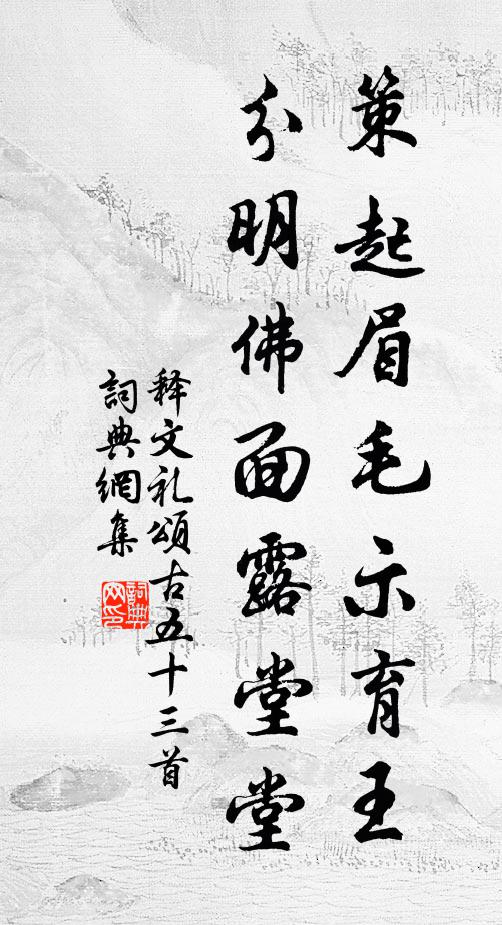 策起眉毛示育王
分明佛面露堂堂
释文礼頌古五十三首
詞典網集
詞典网印